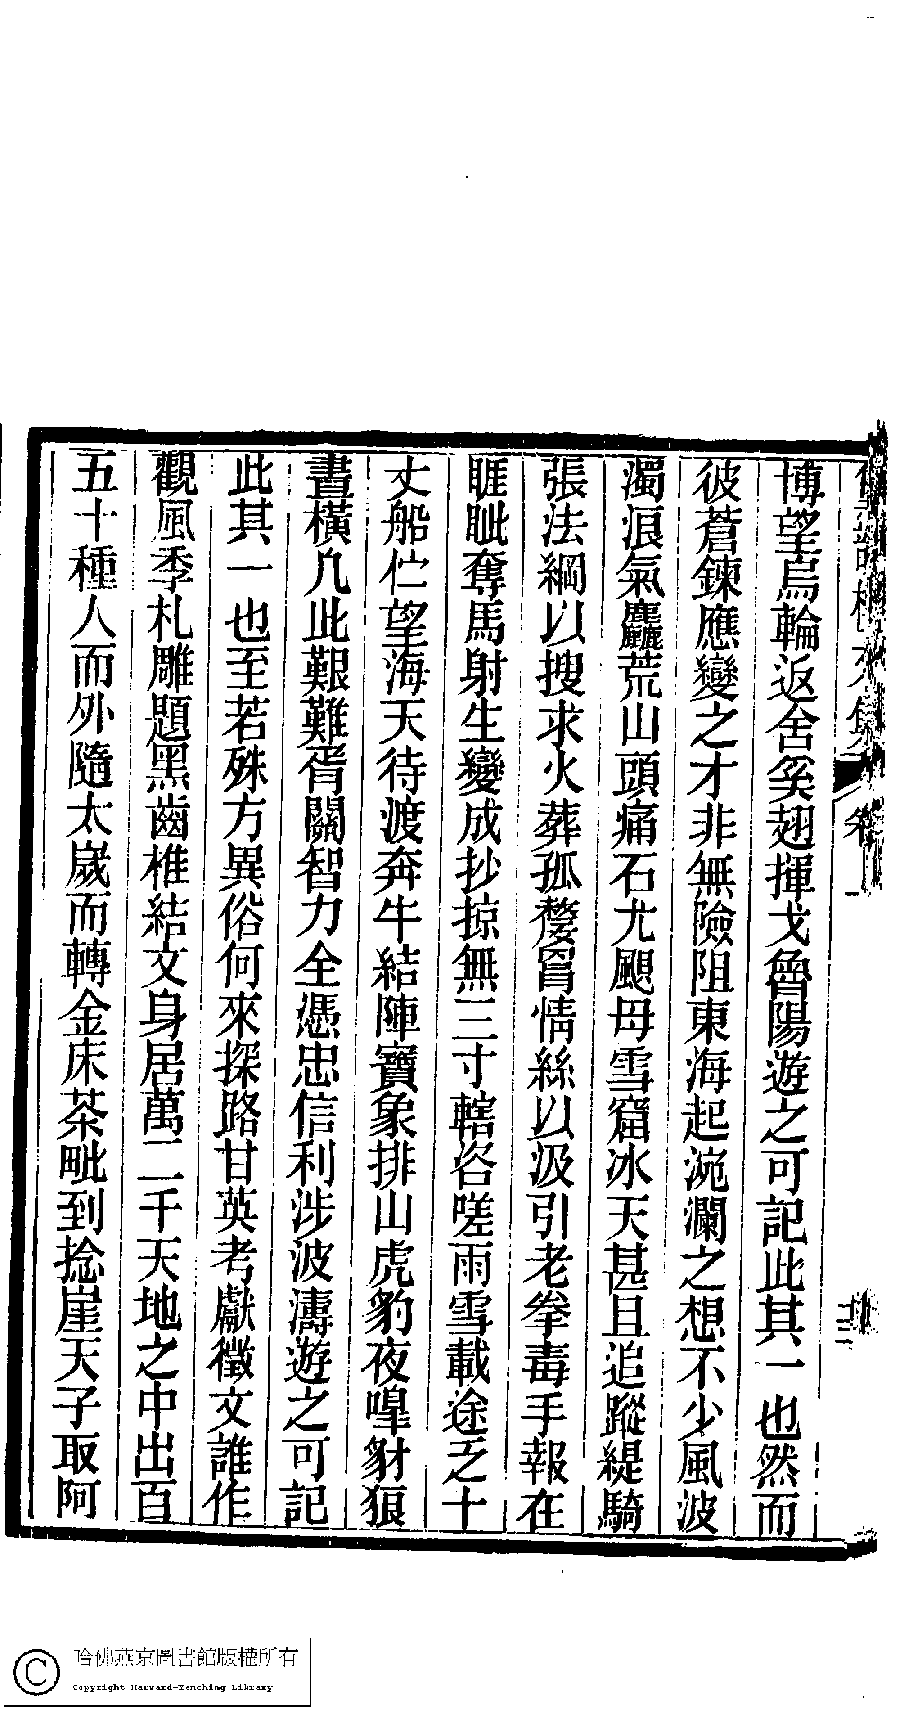 博望烏輪返舍奚翅揮戈魯陽遊之可記此其一也然而
彼蒼鍊應變之才非無險阻東海起涴瀾之想不少風波
濁浪氣麤荒山頭痛石尤颶母雪窟冰天甚且追蹤緹騎
張法綱以搜求火葬孤嫠胃情絲以汲引老拳毒手報在
睚眦奪馬射生變成抄掠無三寸轄咨嗟雨雪載途乏十
丈船伫望海天待渡奔牛結陣寶象排山虎豹夜嘷豺狼
晝橫凡此艱難胥關智力全憑忠信利涉波濤遊之可記
此其一也至若殊方異俗何來探路甘英考獻徵文誰作
觀風季札雕題黑齒椎結文身居萬二千天地之中出百
五十種人而外隨太嵗而轉金床茶毗到捻崖天子取阿
卷一
三
哈佛燕京圖書館版權所有
Copyright Harvard-Yenching Library